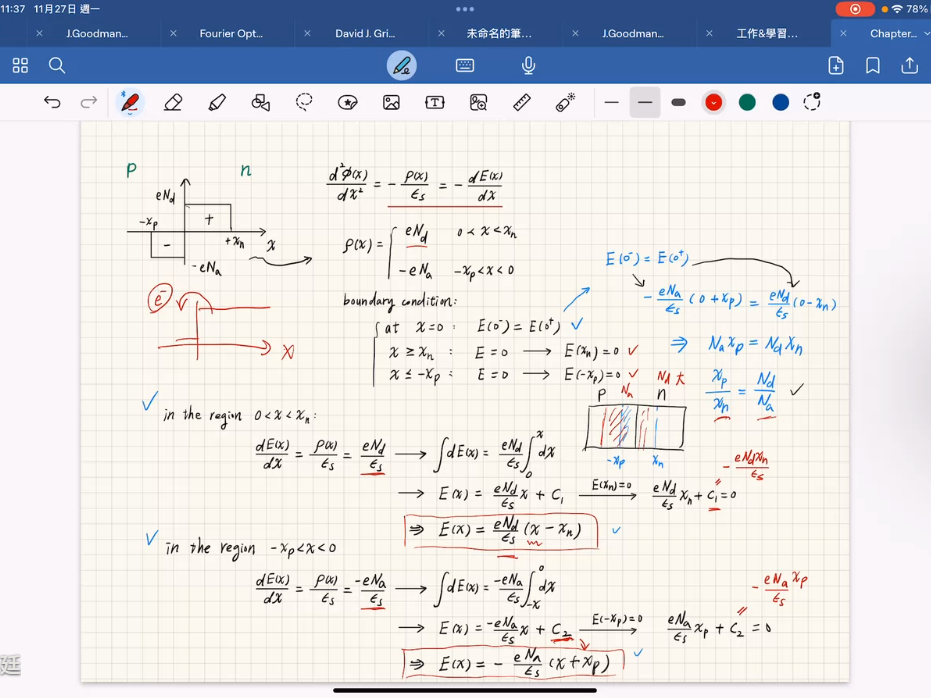 11:37 11月27日 週一
78%
J.Goodman...
Fourier Opt...
David J. Gri...
未命名的筆...
J.Goodman...
工作&學習...
Chapter...
P n
eNd
-xp + +xn x
- -eNa
d²φ(x)/dx² = - ρ(x)/εs = - dE(x)/dx
ρ(x) = { eNd 0 < x < xn
-eNa -xp < x < 0
e⁻
x
boundary condition:
at x=0 : E(0⁻) = E(0⁺) ✓
x ≥ xn : E = 0 → E(xn) = 0 ✓
x ≤ -xp : E = 0 → E(-xp) = 0 ✓
E(0⁻) = E(0⁺)
- eNa/εs (0 + xp) = eNd/εs (0 - xn)
⇒ Na xp = Nd xn
xp/xn = Nd/Na ✓
Nd 大
P n
-xp xn
✓ in the region 0 < x < xn:
dE(x)/dx = ρ(x)/εs = eNd/εs → ∫dE(x) = eNd/εs ∫₀ˣ dx
- eNdxn/εs
→ E(x) = eNd/εs x + C₁ E(xn)=0 → eNd/εs xn + C₁ = 0
⇒ E(x) = eNd/εs (x - xn) ✓
✓ in the region -xp < x < 0
dE(x)/dx = ρ(x)/εs = -eNa/εs → ∫dE(x) = -eNa/εs ∫₋ₓ⁰ dx
- eNa/εs xp
→ E(x) = -eNa/εs x + C₂ E(-xp)=0 → eNa/εs xp + C₂ = 0
⇒ E(x) = - eNa/εs (x + xp) ✓
廷